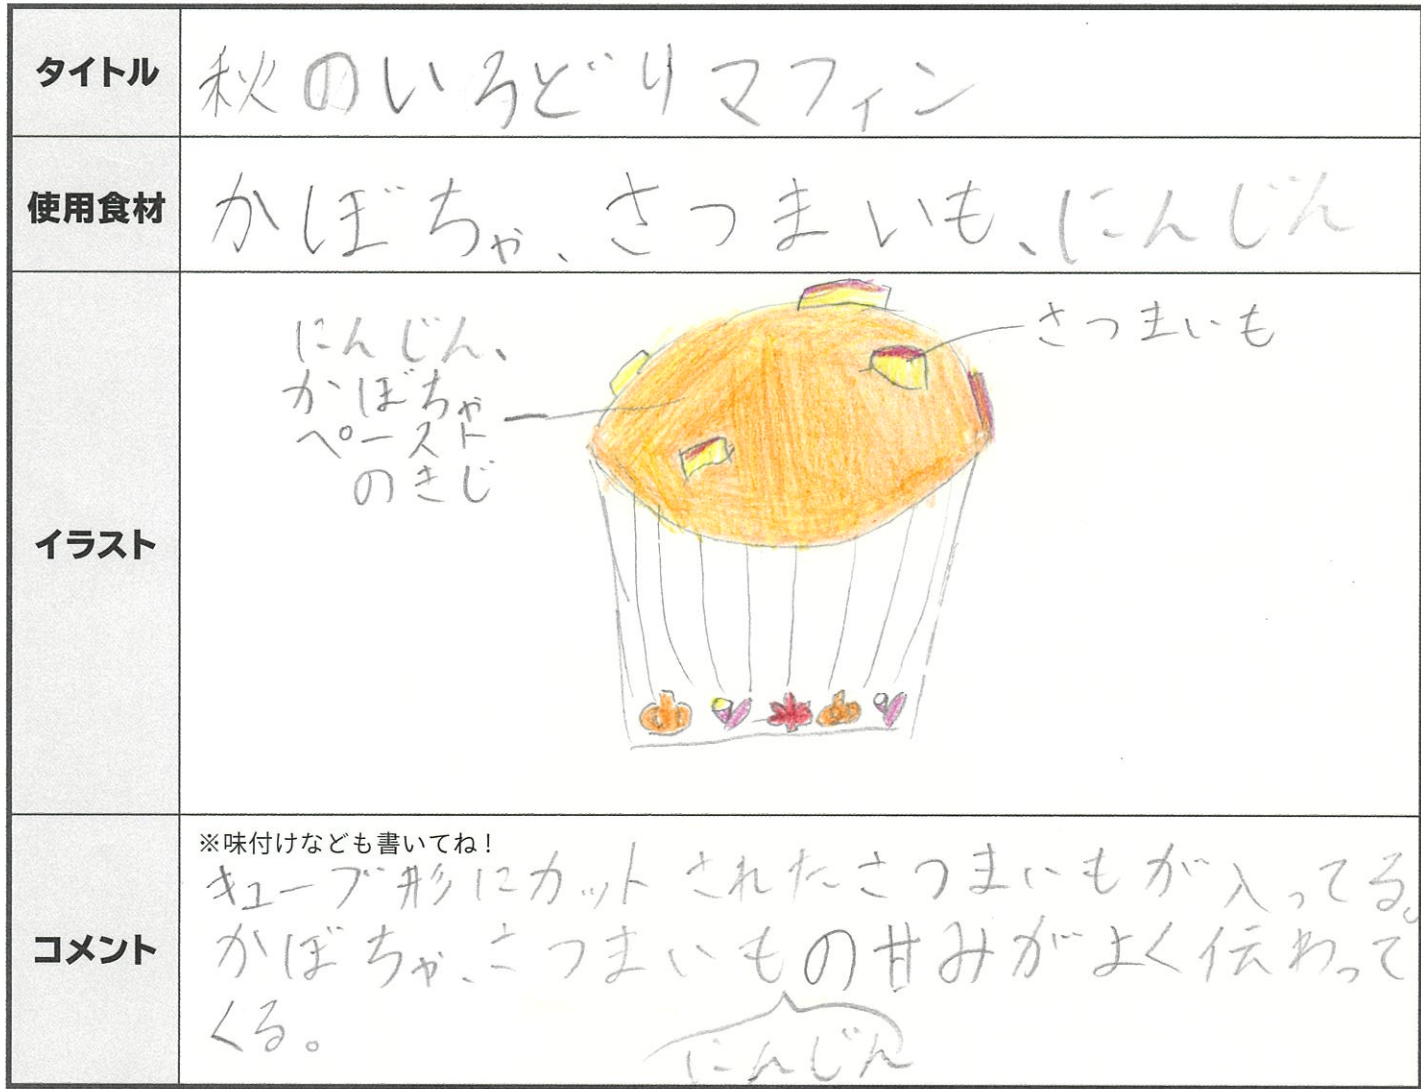 タイトル
秋のいろどりマフィン
使用食材
かぼちゃ、さつまいも、にんじん
イラスト
にんじん、
かぼちゃ
ペースト
のきじ
さつまいも
コメント
※味付けなども書いてね！
キューブ形にカットされたさつまいもが入ってる。
かぼちゃ、さつまいもの甘みがよく伝わって
くる。
にんじん